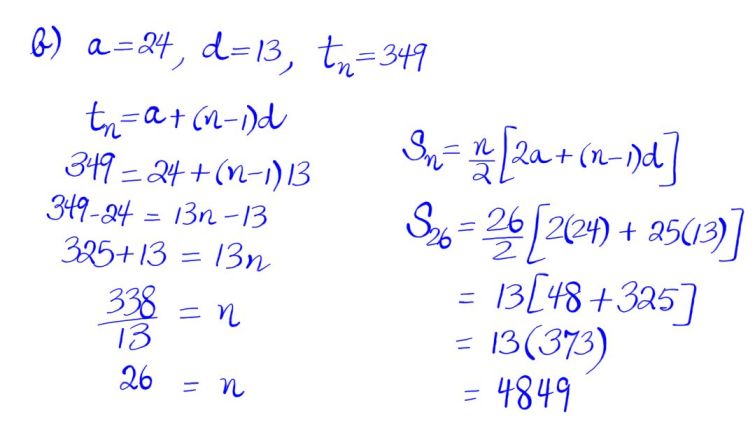 b) a=24, d=13, tₙ=349
tₙ=a+(n-1)d
349=24+(n-1)13
349-24=13n-13
325+13=13n
338/13=n
26=n
Sₙ=n/2[2a+(n-1)d]
S₂₆=26/2[2(24)+25(13)]
=13[48+325]
=13(373)
=4849